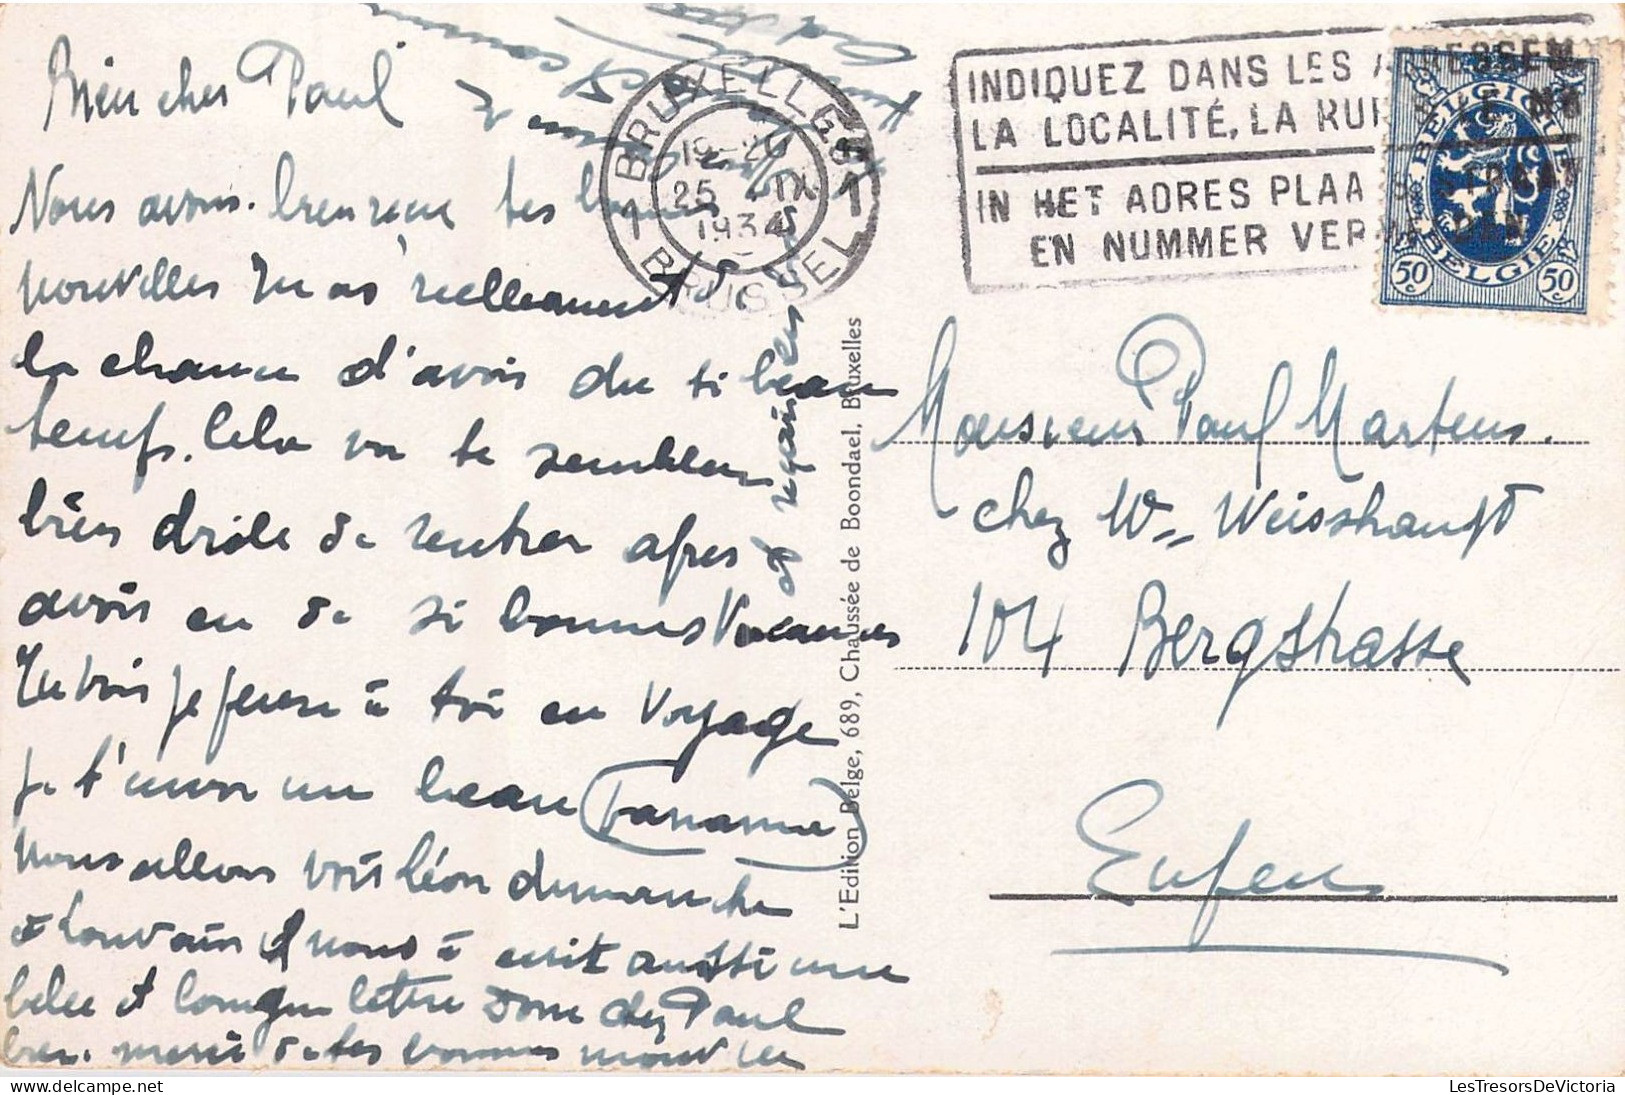 Bien cher Paul
Nous avons bien reçu tes bonnes
nouvelles Tu as réellement
la chance d'avoir du si beau
temps. Cela va te sembler
bien drôle de rentrer apres
avoir eu de si bonnes Vacances
Tu vois je pense à toi en Voyage
je t'envoi un beau (Panama)
nous allons voir Léon dimanche
à Louvain il nous à écrit aussi une
belle et longue lettre Donc cher Paul
bien merci de tes bonnes nouvelles
BRUXELLES 1
19-20
25 IX
1934
1 BRUSSEL
INDIQUEZ DANS LES ADRESSES
LA LOCALITÉ, LA RUE & LE No
IN HET ADRES PLAATS STRAAT
EN NUMMER VERMELDEN
BELGIQUE
BELGIE
50 c 50 c
L'Edition Belge, 689, Chaussée de Boondael, Bruxelles
Monsieur Paul Martens.
chez W. Weisshaupt
104 Bergstrasse
Eupen
LesTresorsDeVictoria